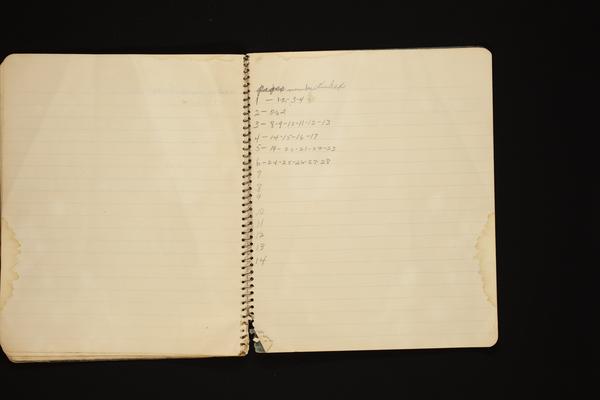 pages number index
1 - 1-2-3-4
2 - 5-6-7
3 - 8-9-10-11-12-13
4 - 14-15-16-17
5 - 19-20-21-22-23
6 - 24-25-26-27-28
7
8
9
10
11
12
13
14